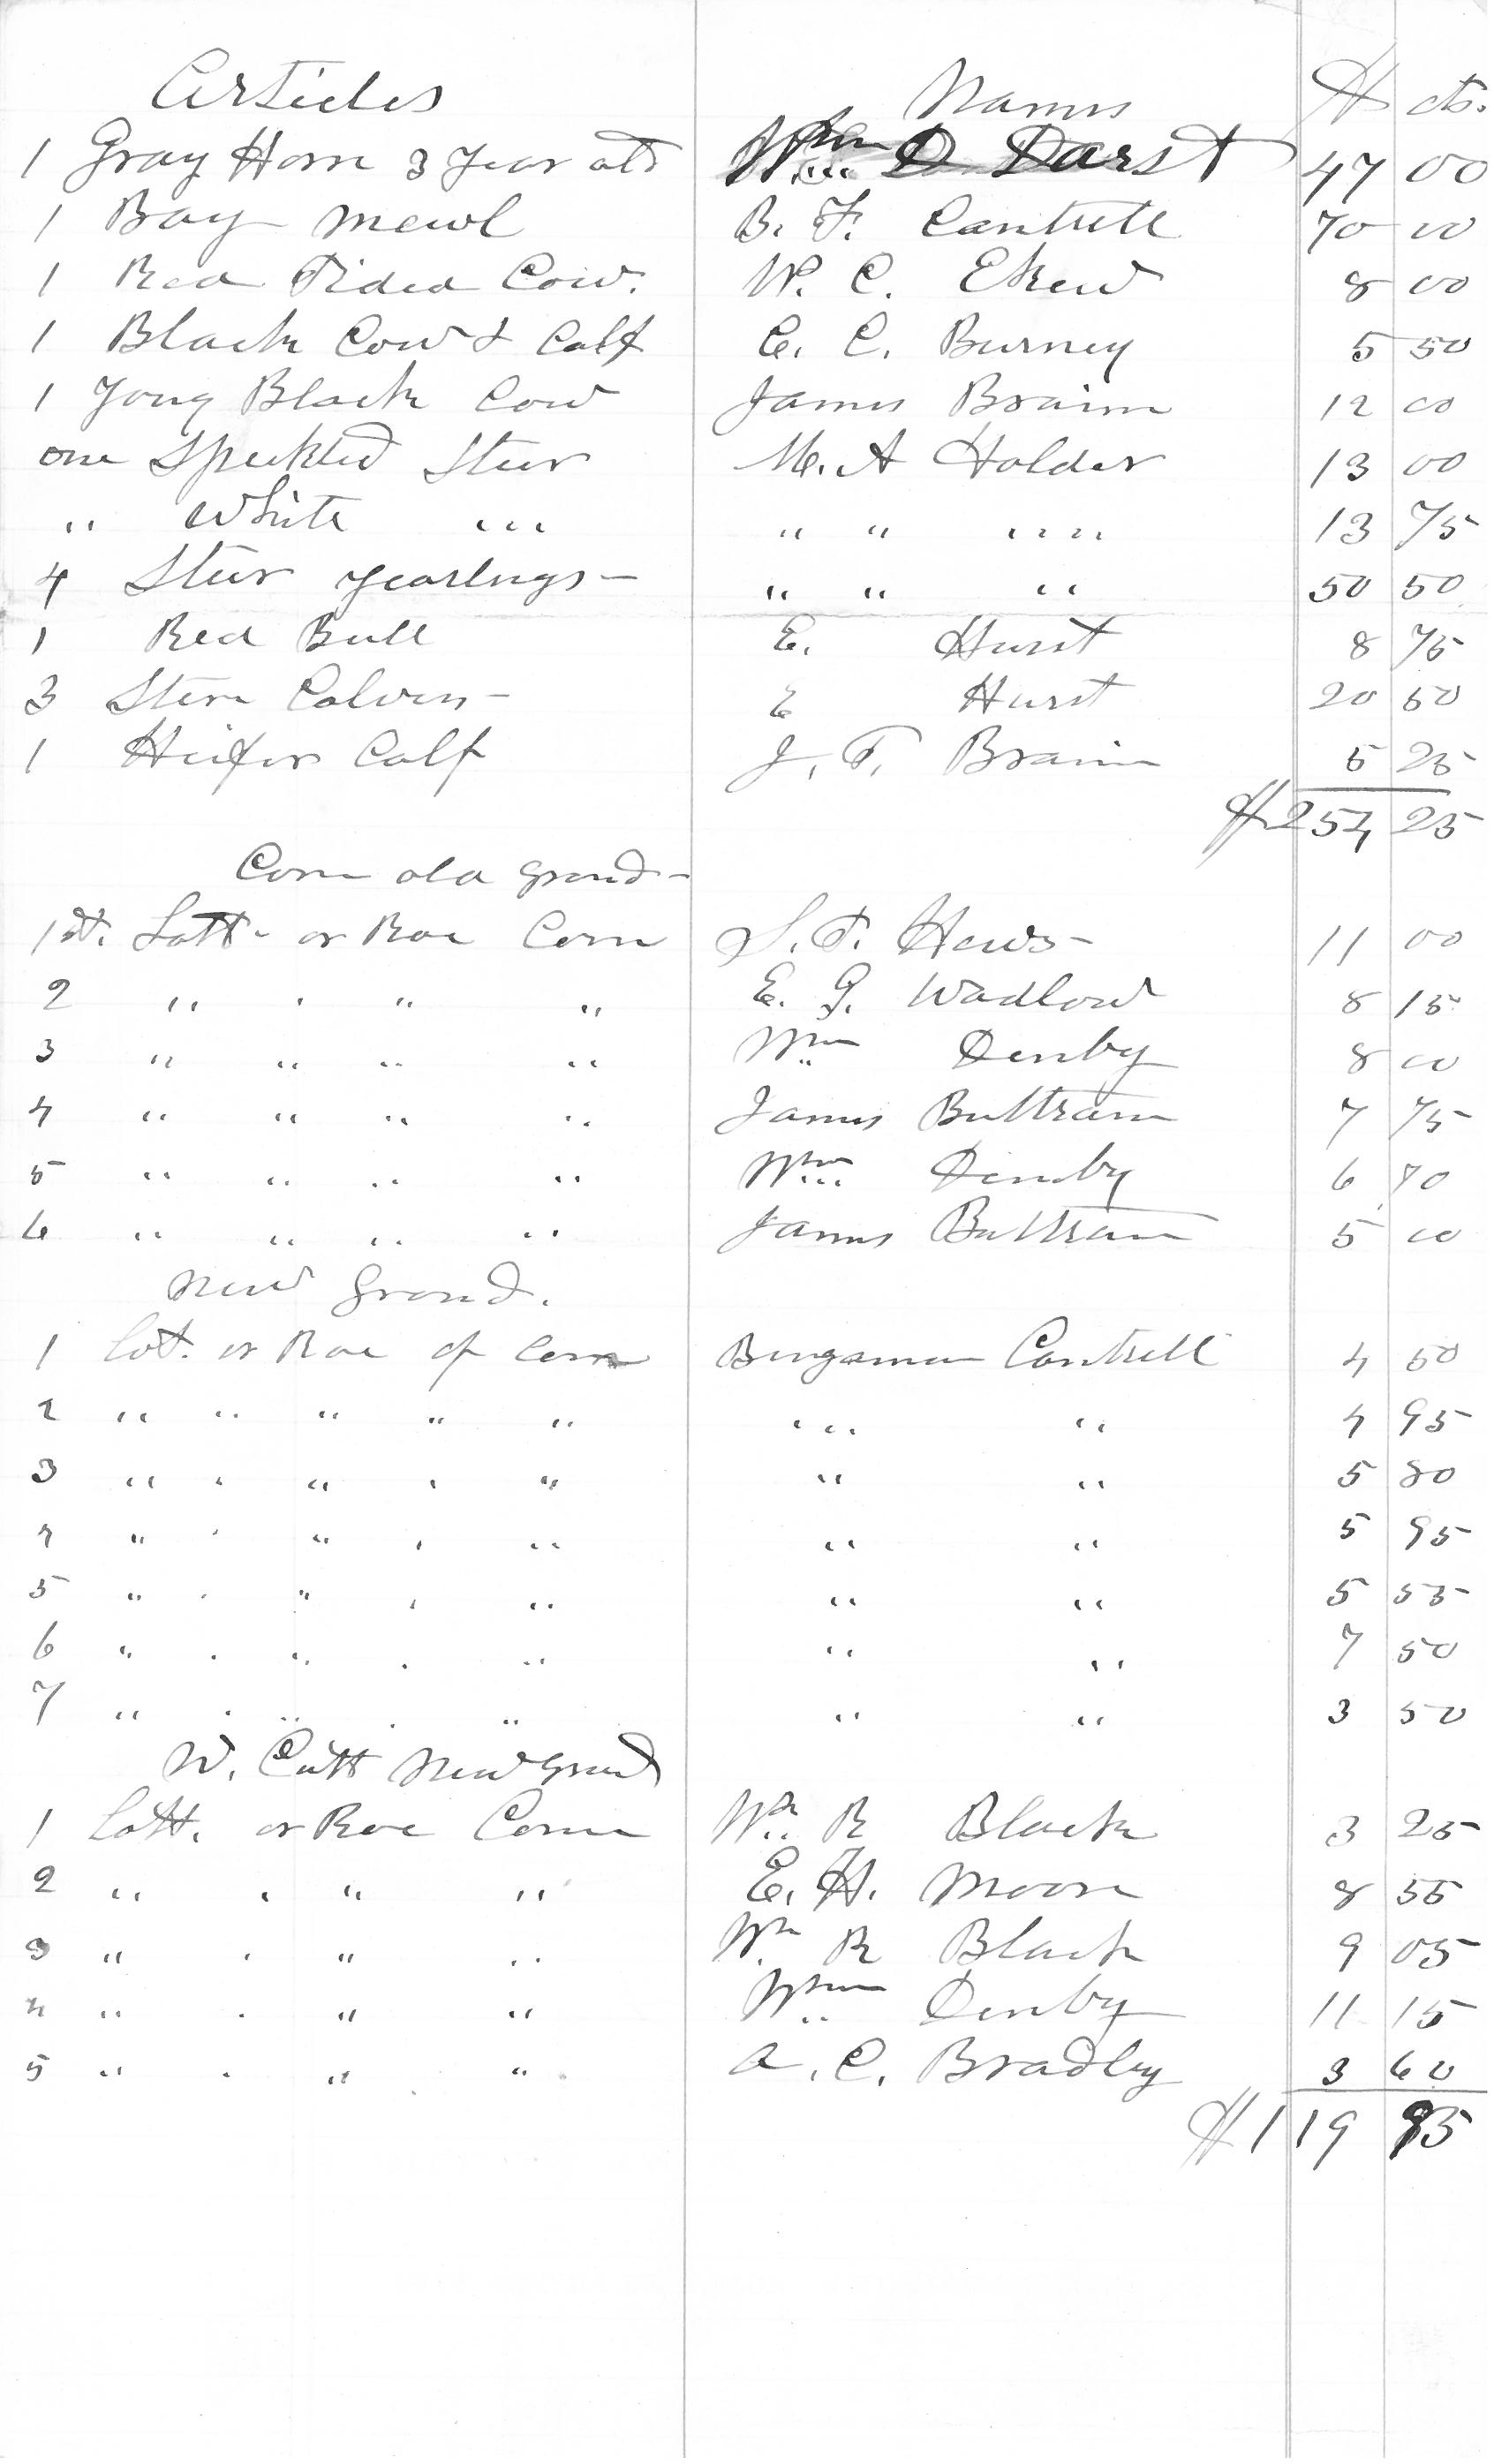 Articles Names $ cts.
1 Gray Horse 3 Year old Wm D Darst 47 00
1 Bay Mewl B. F. Cantrell 70 00
1 Red Sided Cow. W. C. 8 00
1 Black Cow & Calf C. C. Burney 5 50
1 Yong Black Cow James Braim 12 00
one Speckled Steer M. A Holder 13 00
" White " " " " 13 75
4 Steer yearlings - " " " 50 50
1 Red Bull E. Hurst 8 75
3 Steer Calves - E Hurst 20 50
1 Heifer Calf J. T. Braim 5 25
$ 254 25
Corn old Grond -
1st. Lott - or Roe Corn S. T. Haws - 11 00
2 " " " " E. G. Wadlow 8 15
3 " " " " Wm Denby 8 00
4 " " " " James Bultram 7 75
5 " " " " Wm Denby 6 70
6 " " " " James Bultram 5 00
New Grond.
1 Lot. or Roe of Corn Bengaman Cantrell 4 50
2 " " " " " " " 4 95
3 " " " " " " " 5 80
4 " " " " " " " 5 95
5 " " " " " " " 5 55
6 " " " " " " " 7 50
7 " " " " " " " 3 50
W. Cutt New Grond
1 Lott. or Roe Corn Wm R Black 3 25
2 " " " " E. H. Moore 8 55
3 " " " " Wm R Black 9 05
4 " " " " Wm Denby 11 15
5 " " " " A. C. Bradley 3 60
$ 119 95